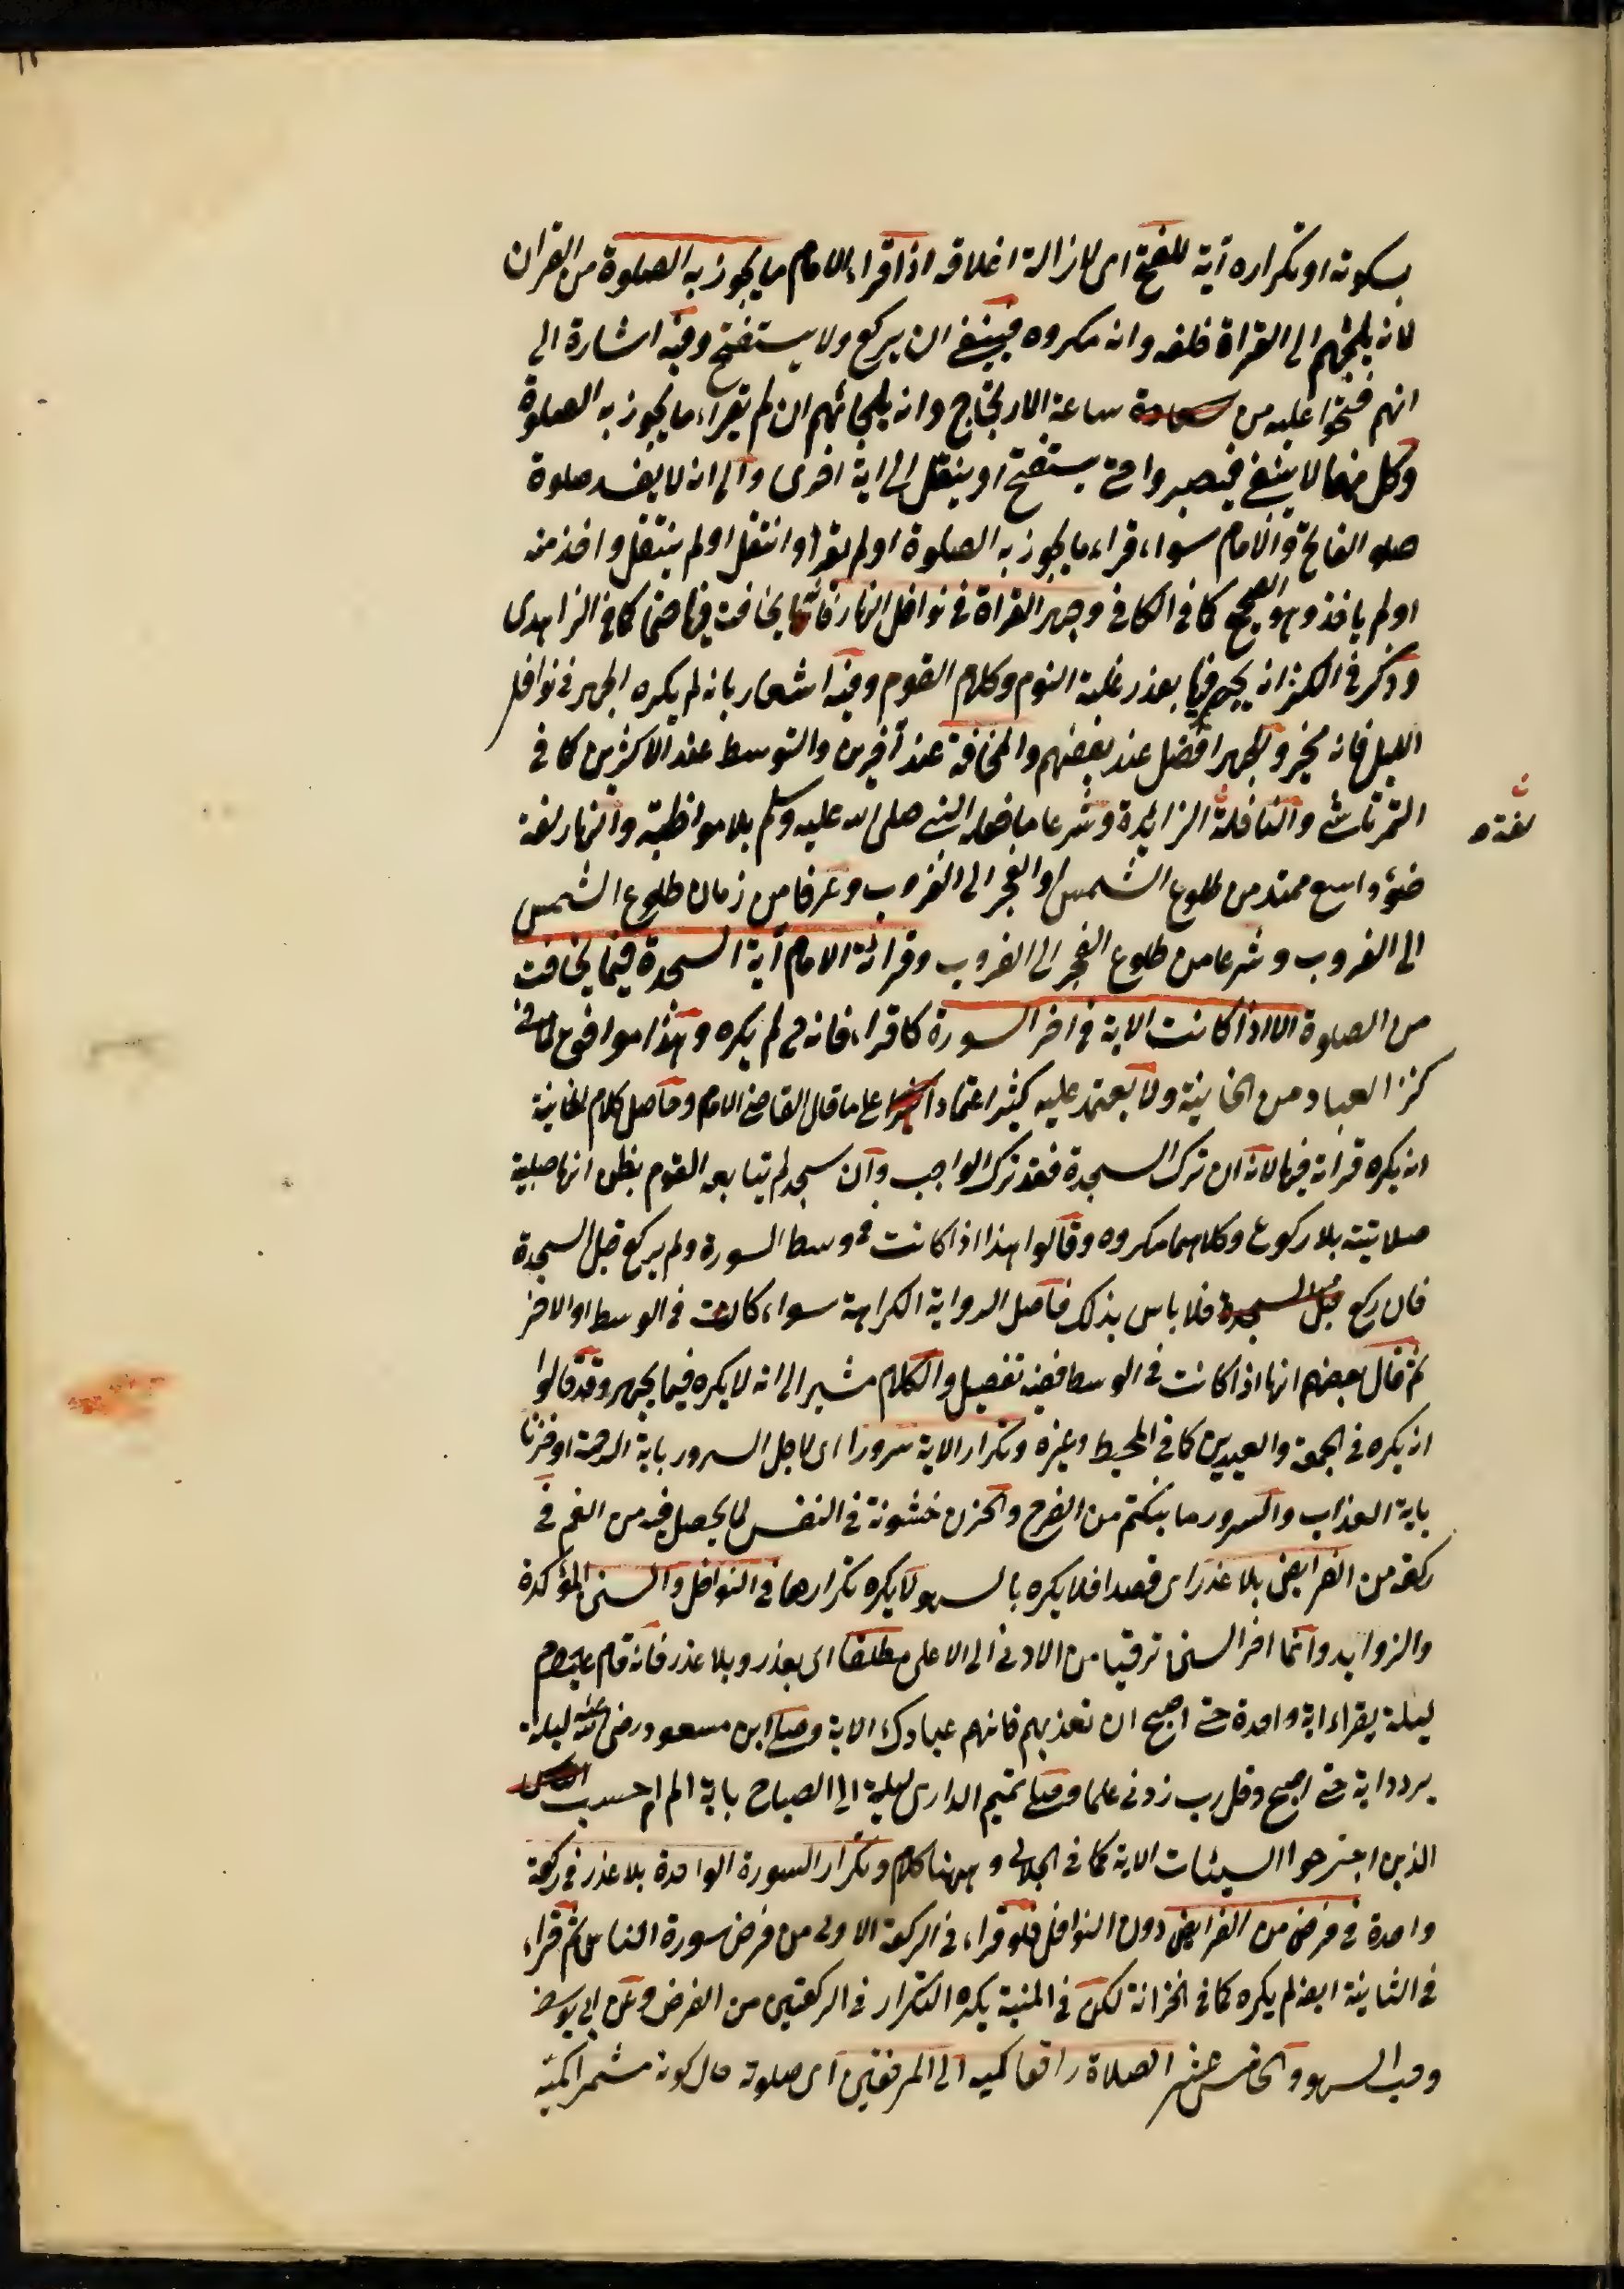 بسكوته او تكراره آية للفتح اى لازالة اغلاقه اذا قراء الامام ما يجوز به الصلوة من القران
لانه يلجئهم الى القراة خلفه وانه مكروه فينبغى ان يركع ولا يستفتح وفيه اشارة الى
انهم فتحوا عليه من ساعة الارتجاج وانه يلجائهم ان لم يقراء ما يجوز به الصلوة
وكل منهما لا ينبغى فيصبروا حتى يستفتح او ينتقل الى اية اخرى والى انه لا يفسد صلوة
صلو الفاتح والامام سواء قراء ما يجوز به الصلوة او لم يقرا وانتقل او لم ينتقل واخذ منه
او لم ياخذ وهو الصحيح كما فى الكافى وجهر القراة فى نوافل النهار فانها يخافت فيها حتما كما فى الزاهدى
وذكر فى الكنز انه يجهر فيها بعذر غلبة النوم وكلام القوم وفيه اشعار بانه لم يكره الجهر فى نوافل
الليل فانه مخير والجهر افضل عند بعضهم والمخافة عند آخرين والتوسط عند الاكثرين كما فى
التمرتاشى والنافلة الزائدة وشرعا ما فعله النبى صلى الله عليه وسلم بلا مواظبة والنهار لغة
ضوء واسع ممتد من طلوع الشمس او الفجر الى الغروب وعرفا من زمان طلوع الشمس
الى الغروب وشرعا من طلوع الفجر الى الغروب وقرائة الامام آية السجدة فيما يخافت
من الصلوة الا اذا كانت الاية فى اخر السورة كما قراء فانه ح لم يكره وهذا موافق لما فى
كنز العباد من الخانية ولا يعتمد عليه كثير اعتمادا على ما قال القاضى الامام وحاصل كلام الخانية
انه يكره قراته فيها لانه ان ترك السجدة فقد ترك الواجب وان سجد لم يتابعه القوم بظن انها صلبية
صلاتية بلا ركوع وكلاهما مكروه وقالوا هذا اذا كانت فى وسط السورة ولم يركع قبل السجدة
فان ركع قبل السجدة فلا باس بذلك فاصل الرواية الكراهة سواء كانت فى الوسط او الاخر
ثم قال بعضهم انها اذا كانت فى الوسط ففيه تفصيل والكلام مشير الى انه لا يكره فيما يجهر وقد قالوا
انه يكره فى الجمعة والعيدين كما فى المحيط وغيره وتكرار الاية سرورا اى لاجل السرور باية الرحمة او حزنا
باية العذاب والسرور ما ينكتم من الفرح والحزن خشونة فى النفس لما يحصل فيه من الغم فى
ركعة من الفرايض بلا عذر اى قصدا فلا يكره بالسهو لا يكره تكرارها فى النوافل والسنن المؤكدة
والزوايد وانما اخر السنن ترقيا من الادنى الى الاعلى مطلقا اى بعذر وبلا عذر فانه قام عليه السلام
ليلة يقراء اية واحدة حتى اصبح ان تعذبهم فانهم عبادك الاية وصلى ابن مسعود رضى الله عنه ليلة
يردد اية حتى اصبح وقل رب زدنى علما وصلى تميم الدارى ليلة الى الصباح باية الم ام حسب
الذين اجترحوا السيئات الاية كما فى الجلابى وههنا كلام وتكرار السورة الواحدة بلا عذر فى ركعة
واحدة فى فرض من الفرايض دون النوافل فلو قراء فى الركعة الاولى من فرض سورة الناس ثم قراء
فى الثانية ايضا لم يكره كما فى الخزانة لكن فى المنية يكره التكرار فى الركعتين من الفرض وعن ابى يوسف
وجب السهو والخامس عشر الصلاة رافعا كميه الى المرفقين اى صلوته حال كونه مشمرا كميه